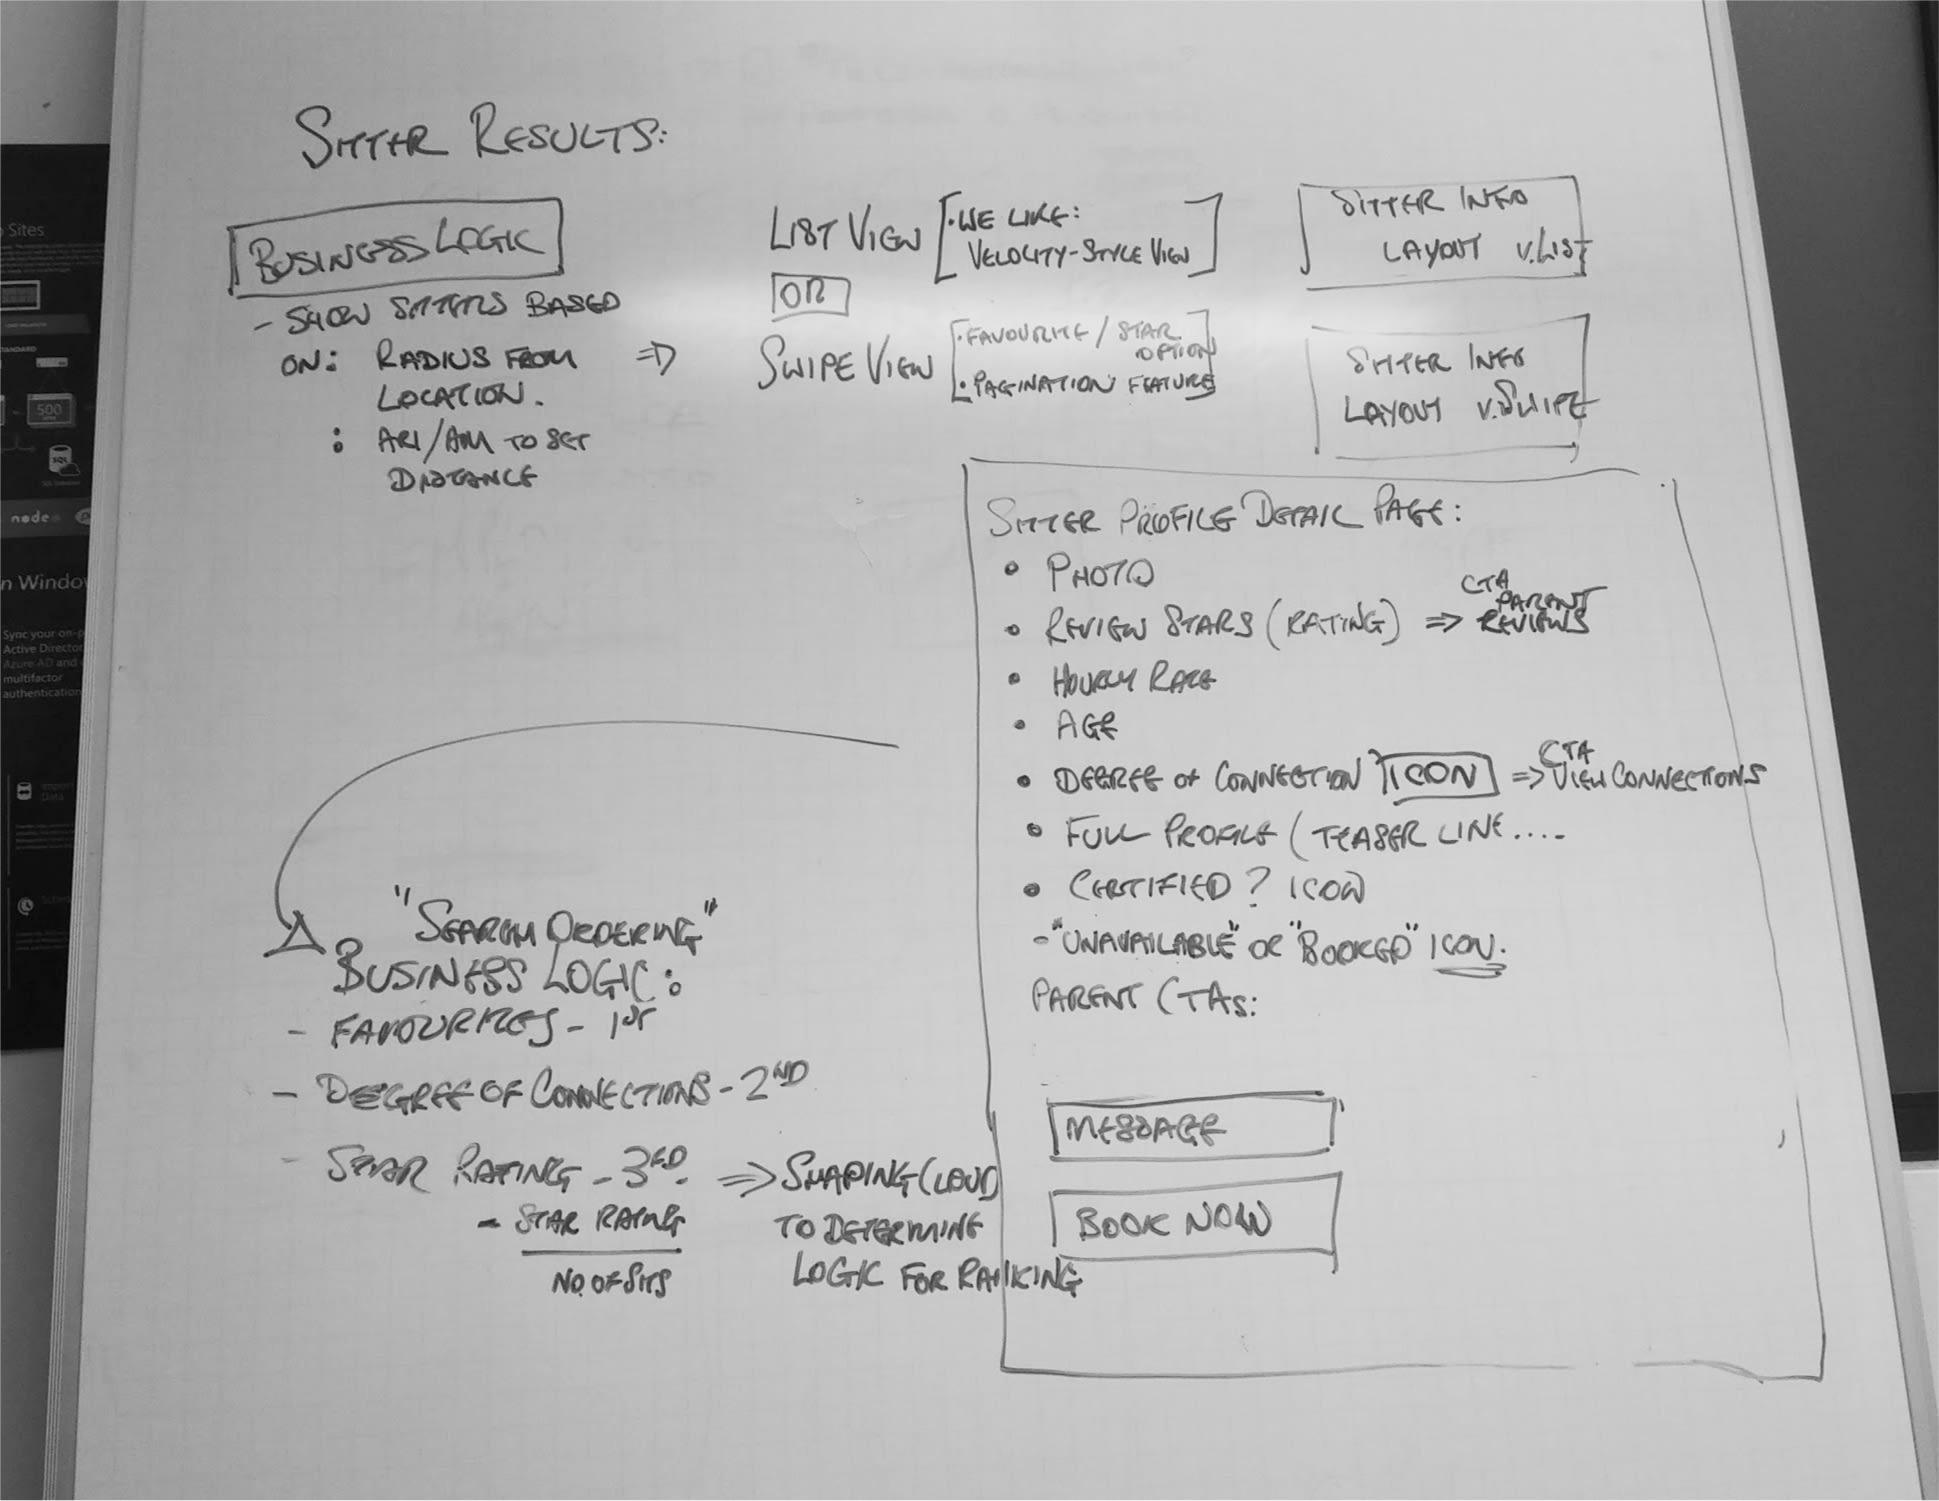 SITTER RESULTS:
BUSINESS LOGIC
- SHOW SITTERS BASED
ON: RADIUS FROM
LOCATION.
: ARI/AM TO SET
DISTANCE
⇒
LIST VIEW
• WE LIKE:
VELOCITY-STYLE VIEW
OR
SWIPE VIEW
• FAVOURITE / STAR
OPTION
• PAGINATION FEATURE
SITTER INFO
LAYOUT V.LIST
SITTER INFO
LAYOUT V.SWIPE
SITTER PROFILE DETAIL PAGE:
• PHOTO
• REVIEW STARS (RATING) ⇒ CTA
PARENT
REVIEWS
• HOURLY RATE
• AGE
• DEGREE OF CONNECTION ICON ⇒ CTA
VIEW CONNECTIONS
• FULL PROFILE (TEASER LINE....
• CERTIFIED? ICON
- "UNAVAILABLE" OR "BOOKED" ICON.
PARENT CTAS:
MESSAGE
BOOK NOW
"SEARCH ORDERING"
BUSINESS LOGIC:
- FAVOURITES - 1ST
- DEGREE OF CONNECTIONS - 2ND
- STAR RATING - 3RD.
- STAR RATING
NO. OF SITS
⇒ SNAPING CLOUD
TO DETERMINE
LOGIC FOR RANKING
Sites
STANDARD
500
SQL
node
n Windo
Sync your on-p
Active Director
Azure AD and
multifactor
authentication
Import
Data